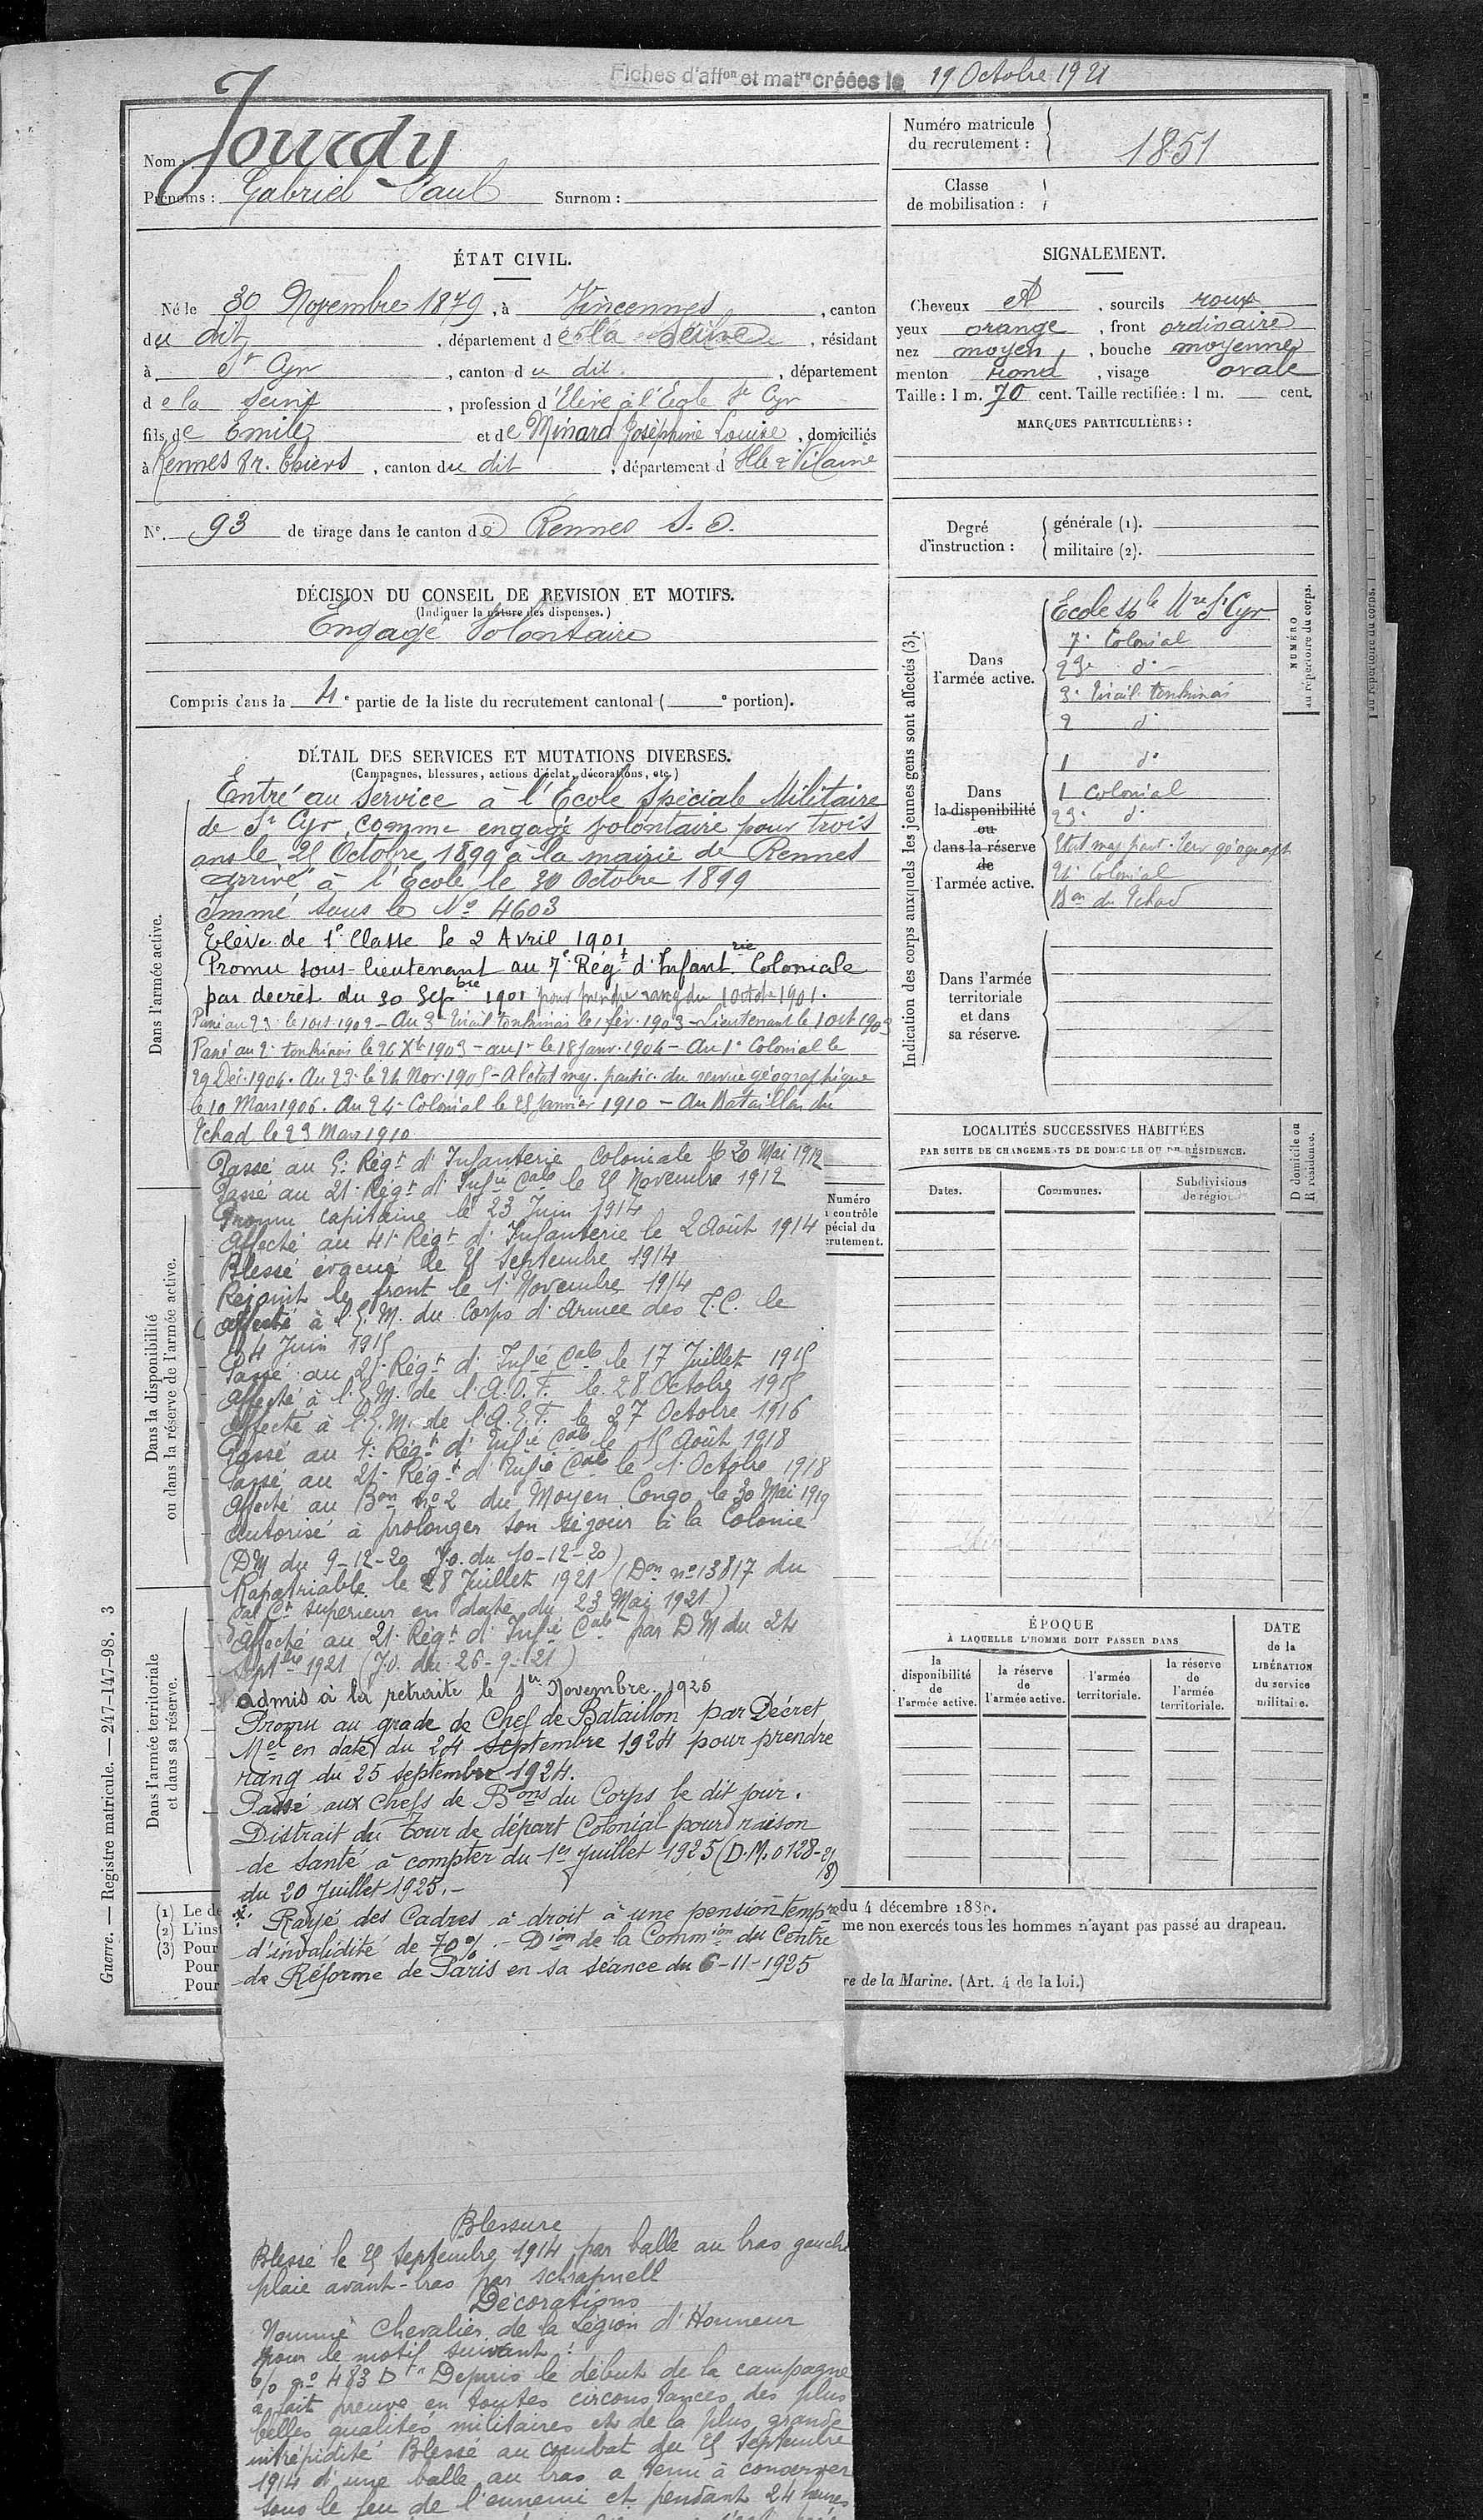 Fiches d'affon et matre créées le 19 Octobre 1921
Nom : Jourdy
Prénoms : Gabriel Paul Surnom :
Numéro matricule du recrutement : 1851
Classe de mobilisation :
ÉTAT CIVIL.
Né le 30 Novembre 1879, à Vincennes, canton
du dit, département de la Seine, résidant
à St Cyr, canton du dit, département
de la Seine, profession d'Elève à l'Ecole St Cyr
fils de Emile et de Minard Joséphine Louise, domiciliés
à Rennes 8 r. Thiers, canton du dit, département d'Ille & Vilaine
N° 93 de tirage dans le canton de Rennes S. O.
SIGNALEMENT.
Cheveux d, sourcils roux
yeux orange, front ordinaire
nez moyen, bouche moyenne
menton rond, visage ovale
Taille : 1 m. 70 cent. Taille rectifiée : 1 m. cent.
MARQUES PARTICULIÈRES :
Degré d'instruction : générale (1).
militaire (2).
DÉCISION DU CONSEIL DE REVISION ET MOTIFS.
(Indiquer la nature des dispenses.)
Engagé Volontaire
Compris dans la 4e partie de la liste du recrutement cantonal ( e portion).
DÉTAIL DES SERVICES ET MUTATIONS DIVERSES.
(Campagnes, blessures, actions d'éclat, décorations, etc.)
Dans l'armée active.
Entré au service à l'Ecole Spéciale Militaire
de St Cyr, comme engagé volontaire pour trois
ans le 25 Octobre 1899 à la mairie de Rennes
arrivé à l'Ecole le 30 Octobre 1899
Immé sous le No 4603
Elève de 1e Classe le 2 Avril 1901
Promu sous-lieutenant au 7e Régt d'Infantrie Coloniale
par decret du 30 Sepbre 1901 pour prendre rang du 1 Octobre 1901.
Passé au 23e le 1 oct 1902 - Au 3e Tirail. tonkinais le 1 fév. 1903 - Lieutenant le 1 oct 1903
Passé au 2e tonkinois le 26 Xbre 1903 - au 1er le 18 Janv. 1904 - Au 1e Colonial le
29 Déc. 1904. Au 23e le 24 Nov. 1905 - A l'etat maj. partic. du service géographique
le 10 Mars 1906. Au 24e Colonial le 25 Janvier 1910 - Au Bataillon du
Tchad le 23 Mars 1910
Passé au 5e Régt d'Infanterie Coloniale le 20 Mai 1912
Passé au 21e Régt d'Infie Cale le 25 Novembre 1912
Promu capitaine le 23 Juin 1914
Affecté au 41e Régt d'Infanterie le 2 Août 1914
Blessé évacué le 25 Septembre 1914
Rejoint le front le 1e Novembre 1914
Affecté à l'E.M. du Corps d'Armée des T.C. le
4 Juin 1915
Passé au 21e Régt d'Infie Cale le 17 Juillet 1915
Affecté à l'E.M. de l'A.O.F. le 28 Octobre 1915
Affecté à l'E.M. de l'A.E.F. le 27 Octobre 1916
Passé au 1e Régt d'Infie Cale le 15 Août 1918
Passé au 21e Régt d'Infie Cale le 1e Octobre 1918
Affecté au Bon no 2 du Moyen Congo le 30 Mai 1919
Autorisé à prolonger son séjour à la Colonie
(DM du 9-12-20 J.o. du 10-12-20)
Rapatriable le 28 Juillet 1921 (Don no 13817 du
Gal Ct supérieur en date du 23 Mai 1921)
Affecté au 21e Régt d'Infie Cale par D M du 24
Septbre 1921 (J.O. du 26-9-21)
admis à la retraite le 1er Novembre 1925
Promu au grade de Chef de Bataillon par Décret
Mel en date du 24 septembre 1924 pour prendre
rang du 25 septembre 1924.
Passé aux chefs de Bons du Corps le dit jour.
Distrait du tour de départ Colonial pour raison
de santé à compter du 1er Juillet 1925 (D.M. 0128-2/8)
du 20 Juillet 1925.-
Rayé des Cadres à droit à une pension tempre
d'invalidité de 70% .- Dion de la Commion du Centre
de Réforme de Paris en sa séance du 6-11-1925
Blessure
Blessé le 25 Septembre 1914 par balle au bras gauche
plaie avant-bras par schrapnell
Décorations
Nommé Chevalier de la Légion d'Honneur
pour le motif suivant :
o/o no 483 D "Depuis le début de la campagne
a fait preuve en toutes circonstances des plus
belles qualités militaires et de la plus grande
intrépidité Blessé au combat du 25 Septembre
1914 d'une balle au bras a tenu à conserver
sous le feu de l'ennemi et pendant 24 heures
Dans la disponibilité ou dans la réserve de l'armée active.
Dans l'armée territoriale et dans sa réserve.
Numéro
contrôle
spécial du
recrutement.
Indication des corps auxquels les jeunes gens sont affectés (3).
NUMÉRO au répertoire du corps.
Dans l'armée active.
Ecole sple Mre St Cyr
7e Colonial
23e do
3e Tirail. tonkinais
2 do
Dans la disponibilité ou dans la réserve de l'armée active.
1 do
1 Colonial
23e do
Etat maj part. Serv géograph
24e Colonial
Bon du Tchad
Dans l'armée territoriale et dans sa réserve.
LOCALITÉS SUCCESSIVES HABITÉES
PAR SUITE DE CHANGEMENTS DE DOMICILE OU DE RÉSIDENCE.
Dates. Communes. Subdivisions de région.
D domicile ou R résidence.
ÉPOQUE
À LAQUELLE L'HOMME DOIT PASSER DANS
la disponibilité de l'armée active.
la réserve de l'armée active.
l'armée territoriale.
la réserve de l'armée territoriale.
DATE de la LIBÉRATION du service militaire.
(1) Le de
du 4 décembre 1889.
(2) L'inst
me non exercés tous les hommes n'ayant pas passé au drapeau.
(3) Pour
Pour
Pour
re de la Marine. (Art. 4 de la loi.)
Guerre. — Registre matricule. — 247-147-98. 3
au répertoire du corps.